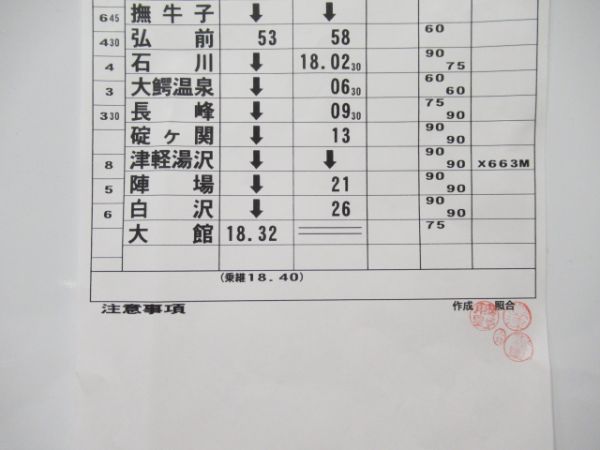 6 45 撫牛子 ⬇ ⬇
4 30 弘前 53 58 60
4 石川 ⬇ 18.02 30 90 75
3 大鰐温泉 ⬇ 06 30 60 60
3 30 長峰 ⬇ 09 30 75 90
碇ヶ関 ⬇ 13 90 90
8 津軽湯沢 ⬇ ⬇ 90 90 ×663M
5 陣場 ⬇ 21 90 90
6 白沢 ⬇ 26 90 90
大館 18.32 75
(乗継18.40)
注意事項 作成 照合